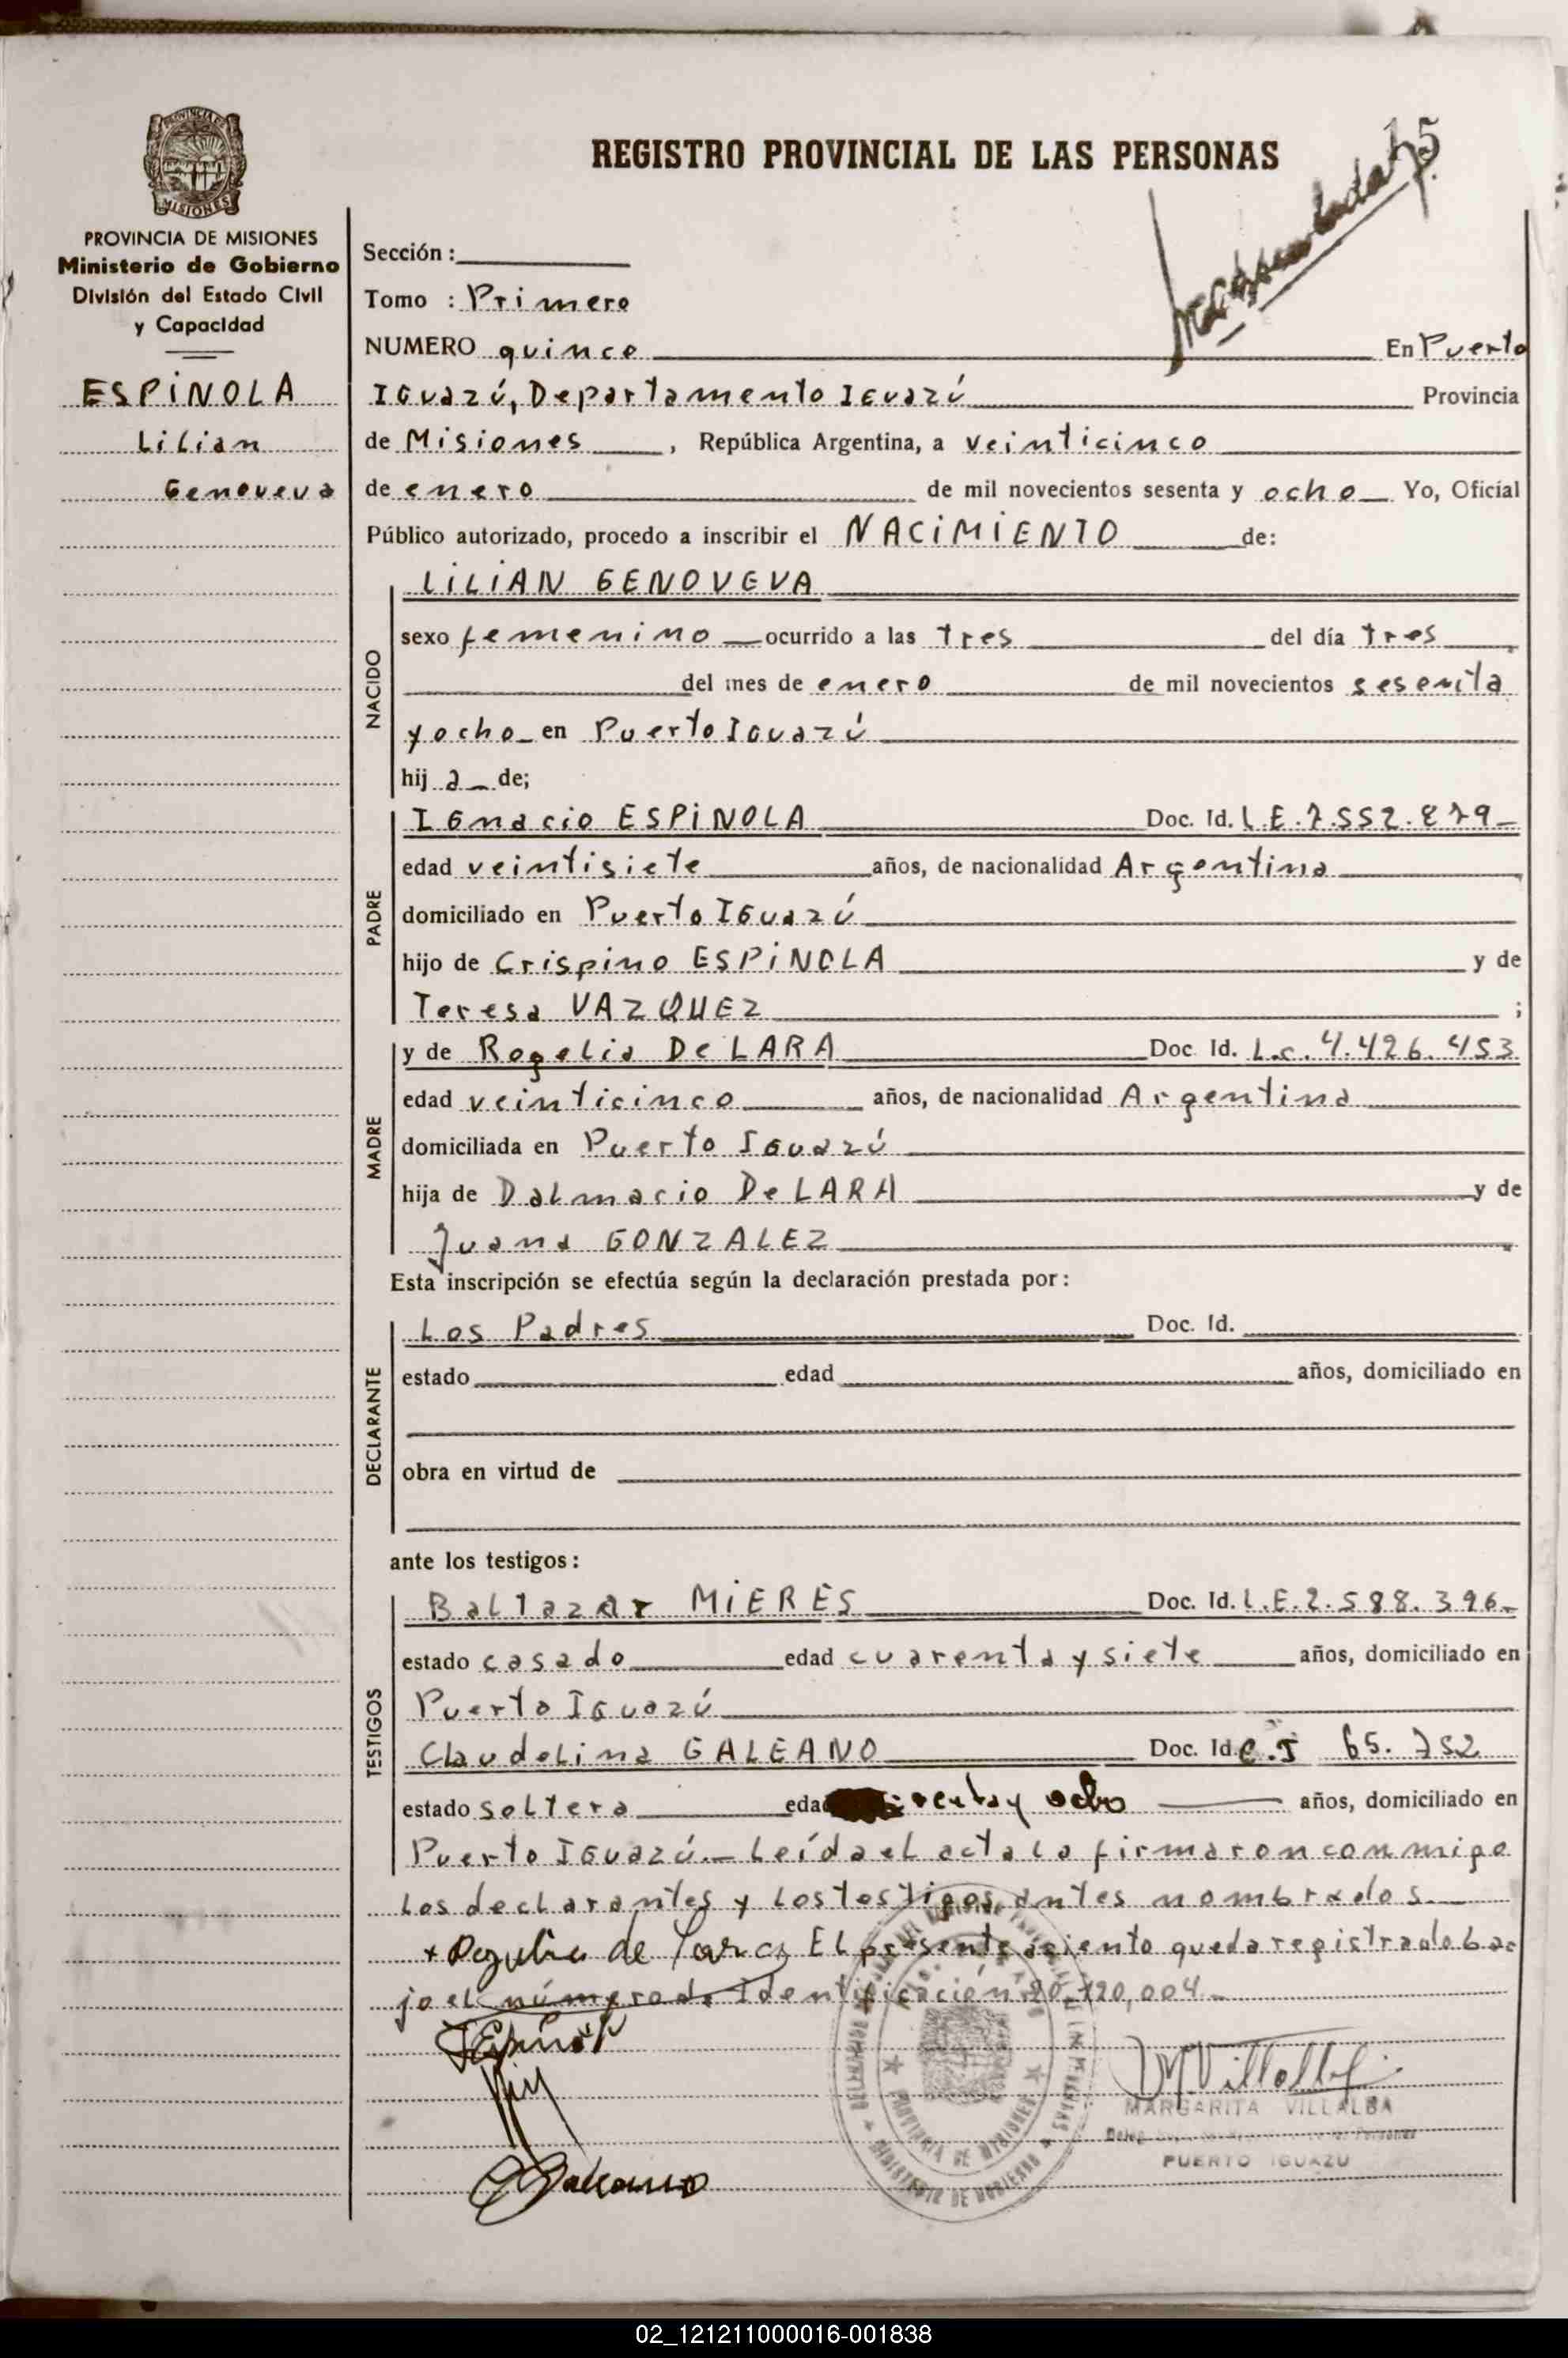 REGISTRO PROVINCIAL DE LAS PERSONAS
15
PROVINCIA DE
MISIONES
PROVINCIA DE MISIONES
Ministerio de Gobierno
División del Estado Civil
y Capacidad
ESPINOLA
Lilian
Genoveva
Sección :
Tomo : Primero
NUMERO quince En Puerto
Iguazú, Departamento Iguazú Provincia
de Misiones , República Argentina, a veinticinco
de enero de mil novecientos sesenta y ocho Yo, Oficial
Público autorizado, procedo a inscribir el NACIMIENTO de:
NACIDO
LILIAN GENOVEVA
sexo femenino ocurrido a las tres del día tres
del mes de enero de mil novecientos sesenta
y ocho en Puerto Iguazú
hij a de;
PADRE
Ignacio ESPINOLA Doc. Id. L.E. 7.552.879
edad veintisiete años, de nacionalidad Argentina
domiciliado en Puerto Iguazú
hijo de Crispino ESPINOLA y de
Teresa VAZQUEZ ;
MADRE
y de Rogelia De LARA Doc. Id. L.c. 4.426.453
edad veinticinco años, de nacionalidad Argentina
domiciliada en Puerto Iguazú
hija de Dalmacio De LARA y de
Juana GONZALEZ
Esta inscripción se efectúa según la declaración prestada por:
DECLARANTE
Los Padres Doc. Id.
estado edad años, domiciliado en
obra en virtud de
ante los testigos:
TESTIGOS
Baltazar MIERES Doc. Id. L.E. 2.588.396
estado casado edad cuarenta y siete años, domiciliado en
Puerto Iguazú
Claudelina GALEANO Doc. Id. C.I 65.752
estado soltera eda y ocho años, domiciliado en
Puerto Iguazú.- Leída el acta la firmaron conmigo
los declarantes y los testigos antes nombrados.
+ de Lara El presente asiento queda registrado ba
jo el número de Identificación 20.120,004
Espinola
Galeano
PROVINCIA DE MISIONES
MINISTERIO DE GOBIERNO
Villalba
MARGARITA VILLALBA
PUERTO IGUAZU
02_121211000016-001838